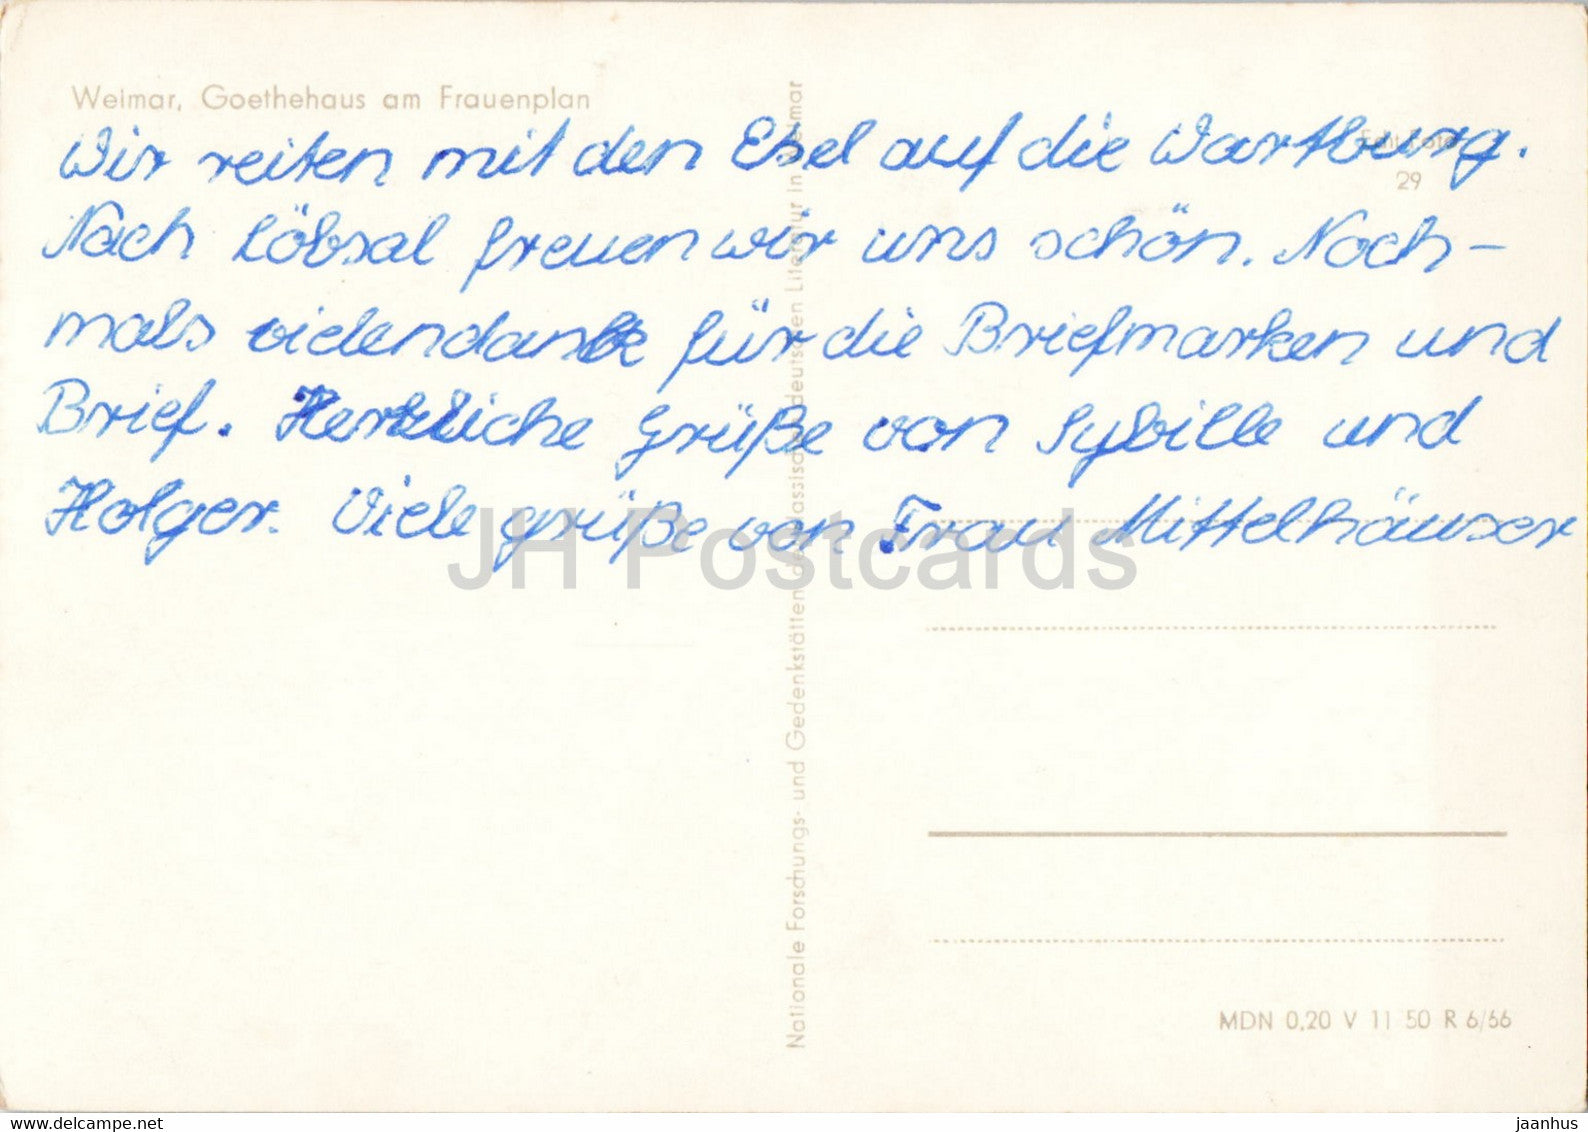 Weimar, Goethehaus am Frauenplan
Echt Foto
29
Wir reiten mit den Esel auf die Wartburg.
Nach Löbsal freuen wir uns schön. Noch-
mals vielendank für die Briefmarken und
Brief. Herzliche Grüße von Sybille und
Holger. Viele grüße von Frau Mittelhäuser
JH Postcards
Nationale Forschungs- und Gedenkstätten der klassischen deutschen Literatur in Weimar
MDN 0,20 V 11 50 R 6/66
www.delcampe.net
jaanhus